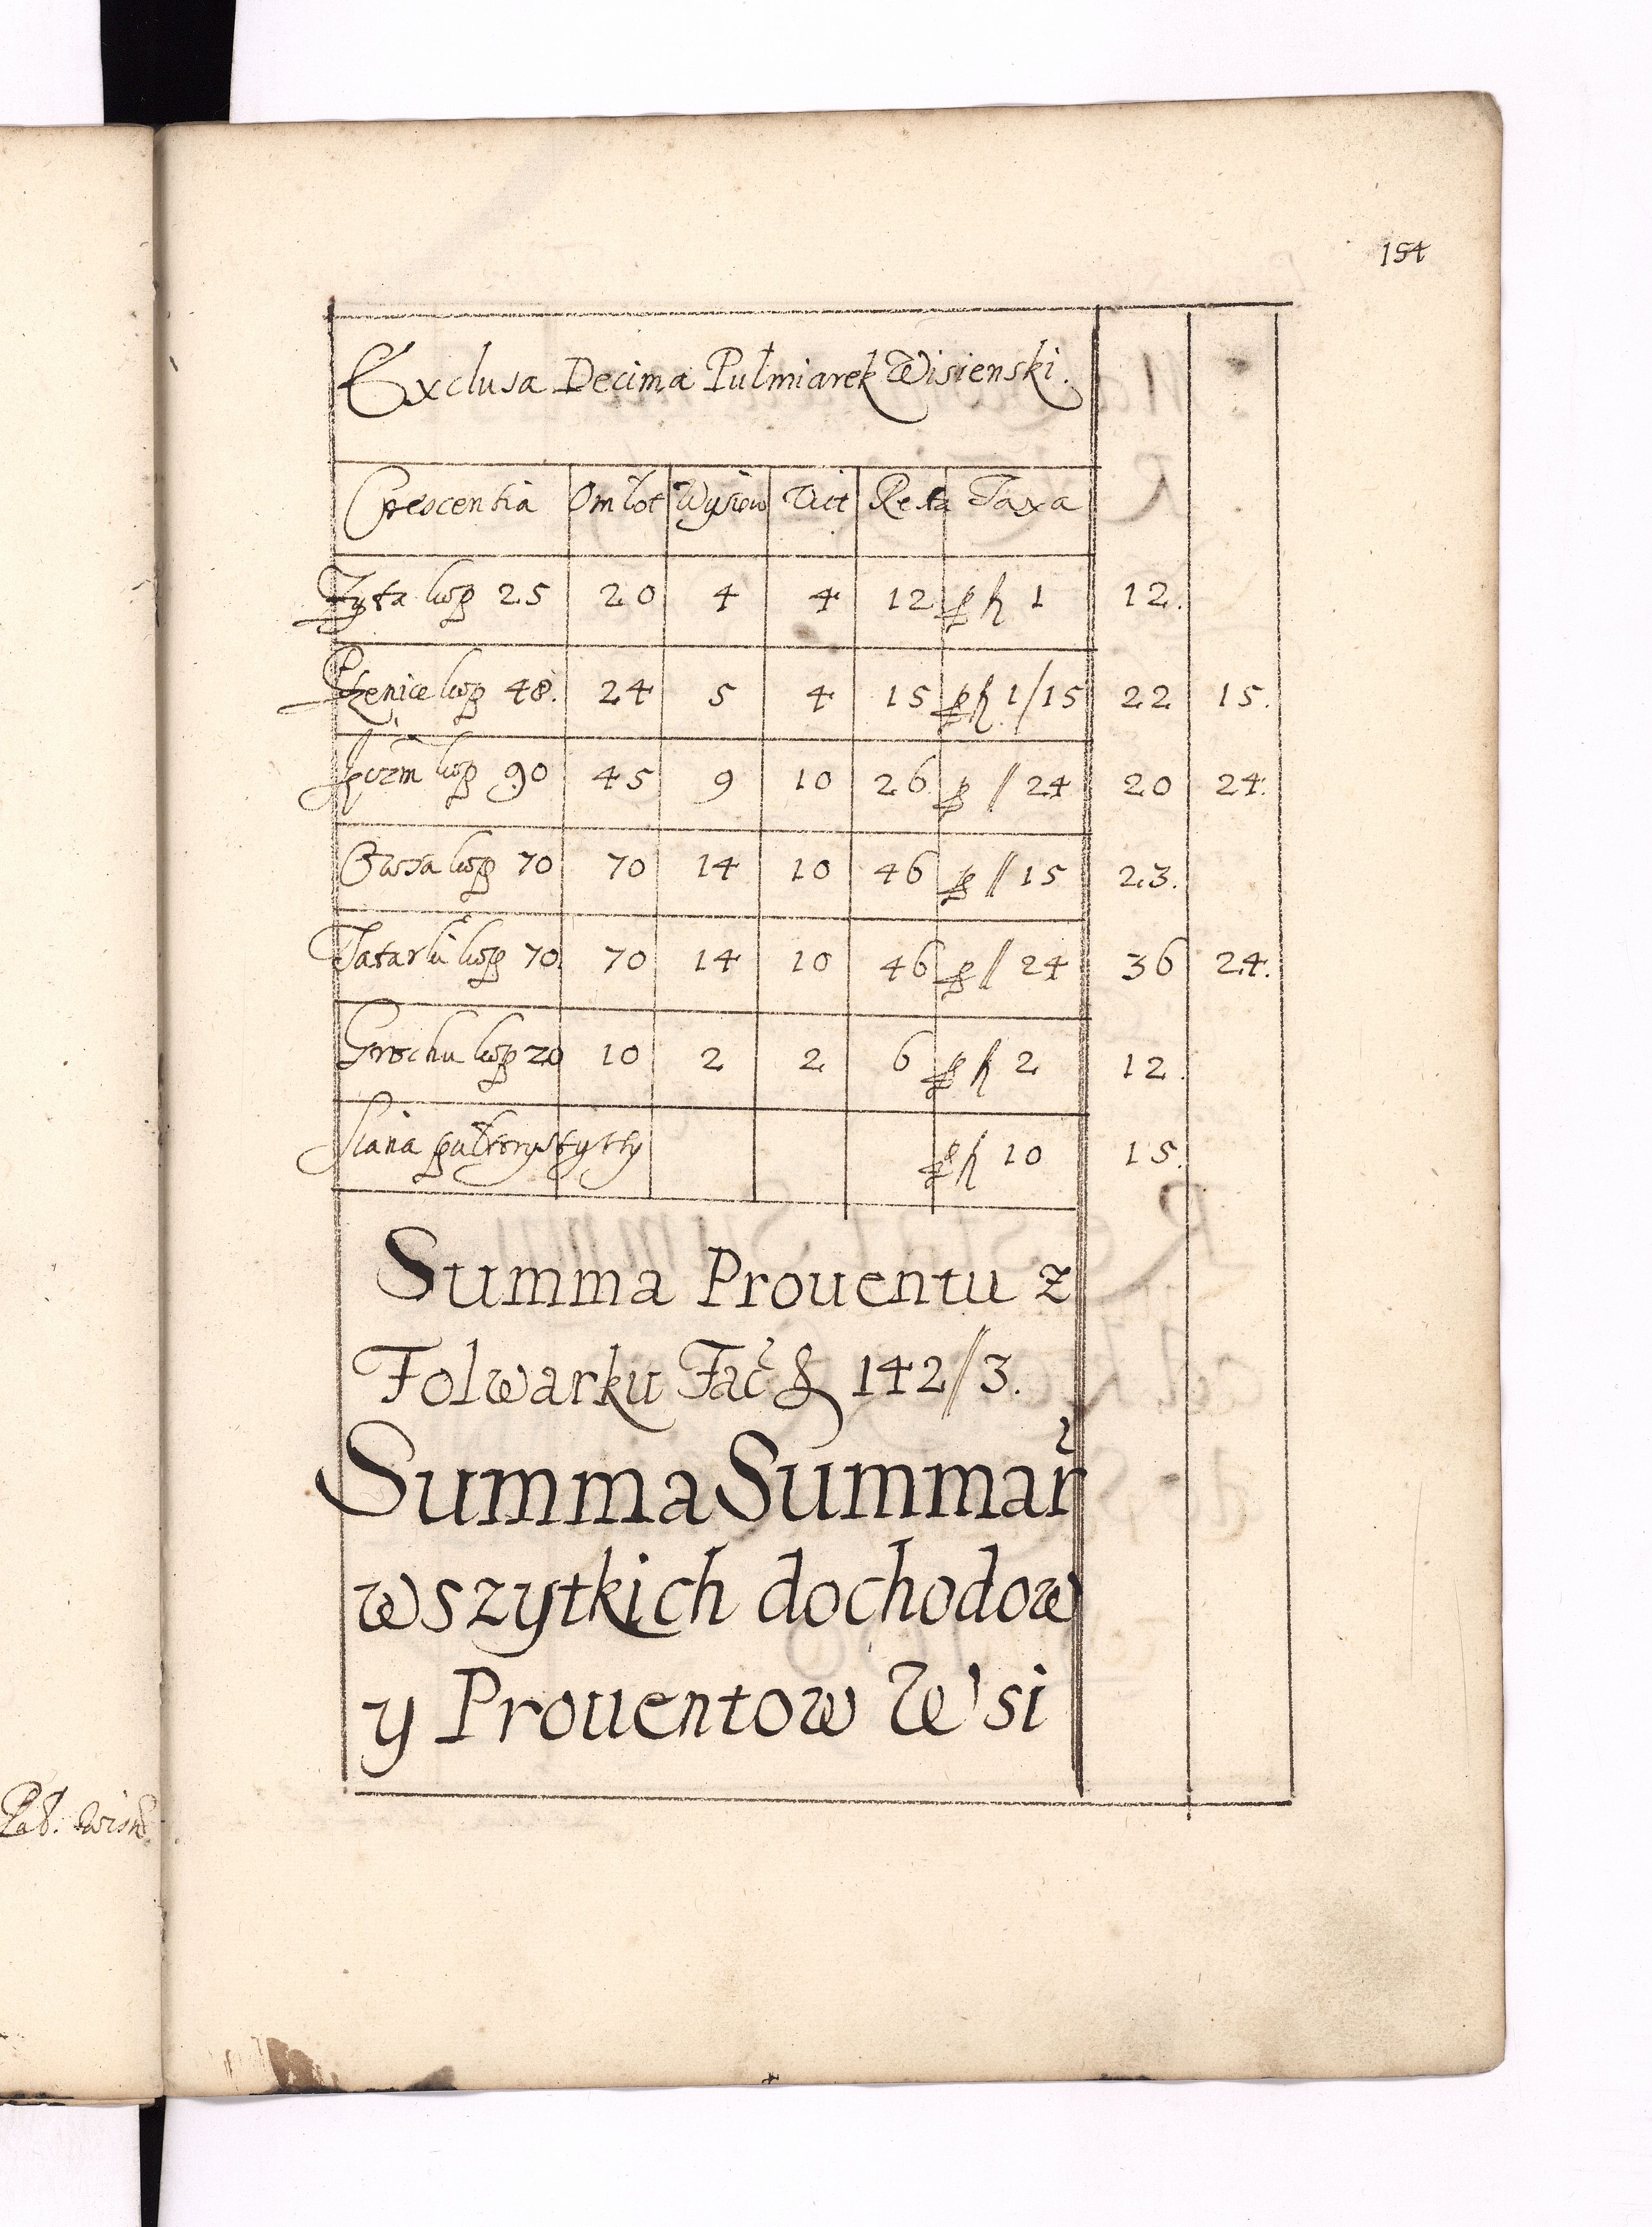 154
Exclusa Decima Pulmiarek Wisienski.
Crescentia Omłot Wysiew Vict Resta Taxa
Zyta kop 25 20 4 4 12 p fl 1 12.
Pszenice kop 48. 24 5 4 15 p fl 1/15 22 15.
Jęczm kop 90 45 9 10 26 p // 24 20 24.
Owsa kop 70 70 14 10 46 p // 15 23.
Tatarki kop 70 70 14 10 46 p // 24 36 24.
Grochu kop 20 10 2 2 6 p fl 2 12.
Siana pułtory styrty p fl 10 15.
Summa Prouentu z
Folwarku Fac fl 142//3.
Summa Summar
wszytkich dochodow
y Prouentow Wsi